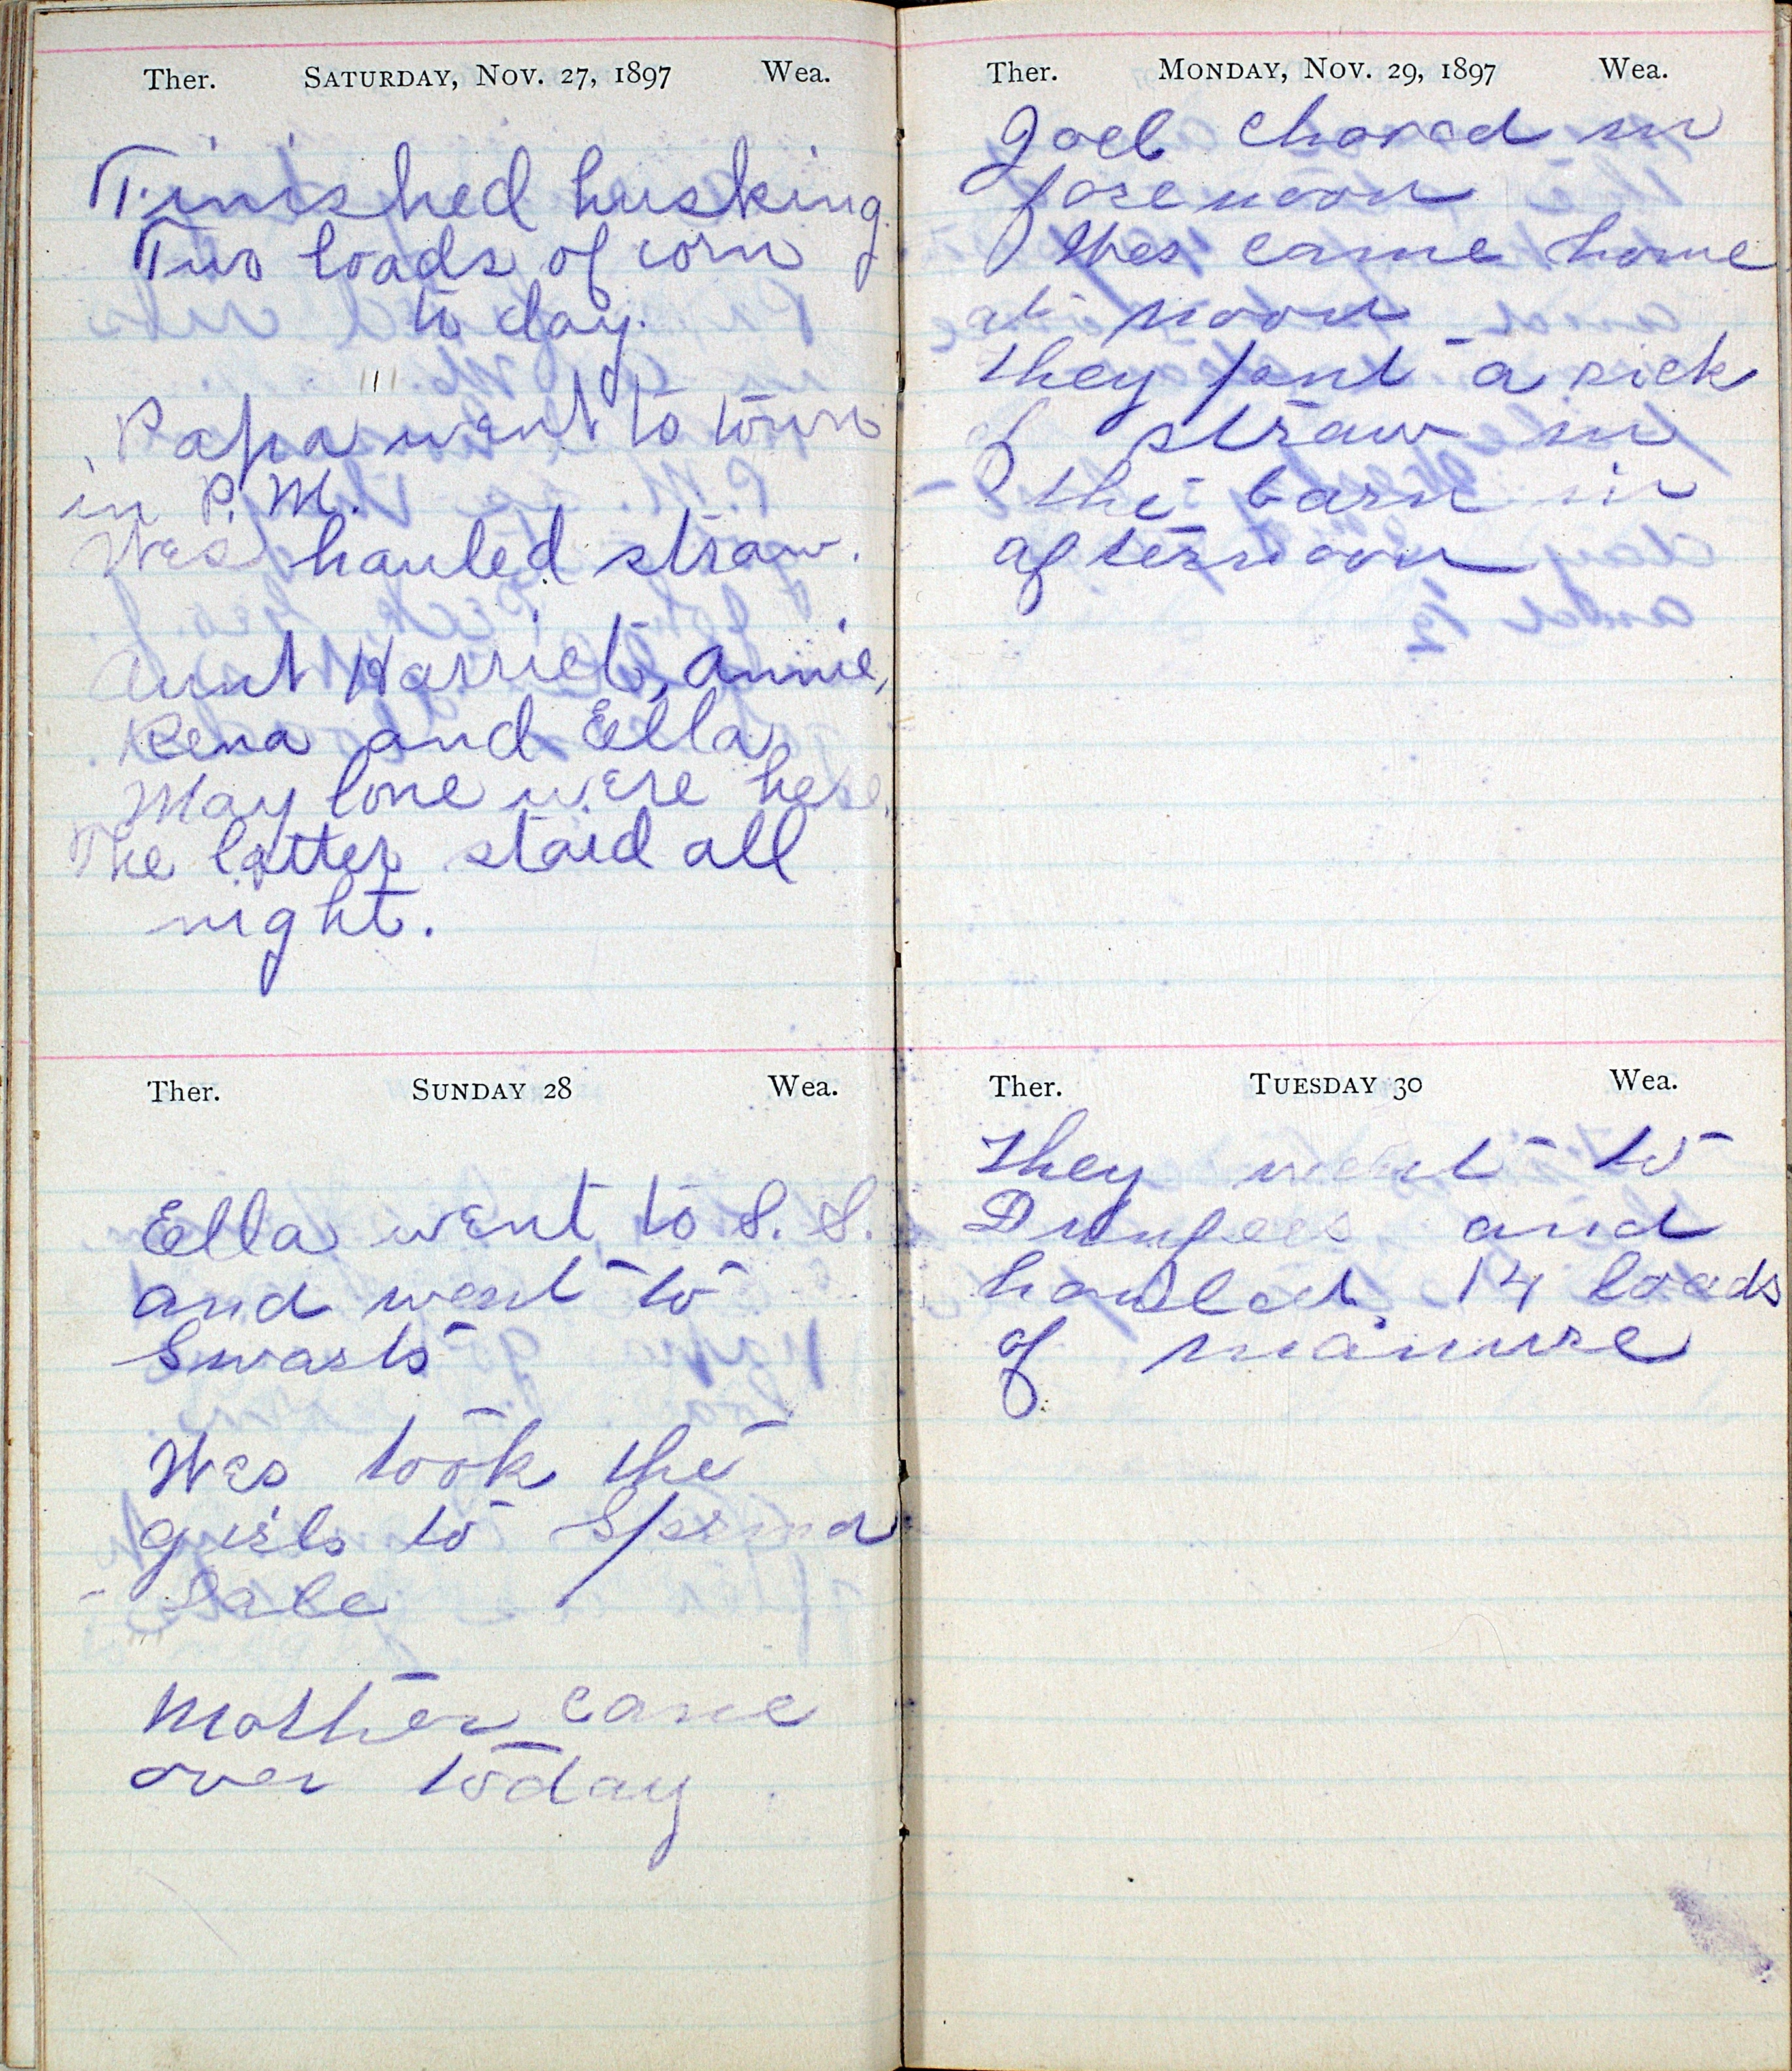 Ther. SATURDAY, NOV. 27, 1897 Wea.
Finished husking
Two loads of corn
to day.
Papa went to town
in P.M.
Wes hauled straw.
Aunt Harriet, Annie,
Rena and Ella
May lone were here.
The latter staid all
night.
Ther. SUNDAY 28 Wea.
Ella went to S. S.
and went to
Swarts
Wes took the
girls to
Mother came
over today
Ther. MONDAY, NOV. 29, 1897 Wea.
Joel chored in
forenoon
Wes came home
at noon
they put a rick
of straw in
the barn in
afternoon
Ther. TUESDAY 30 Wea.
they went to
and
hauled 14 loads
of manure